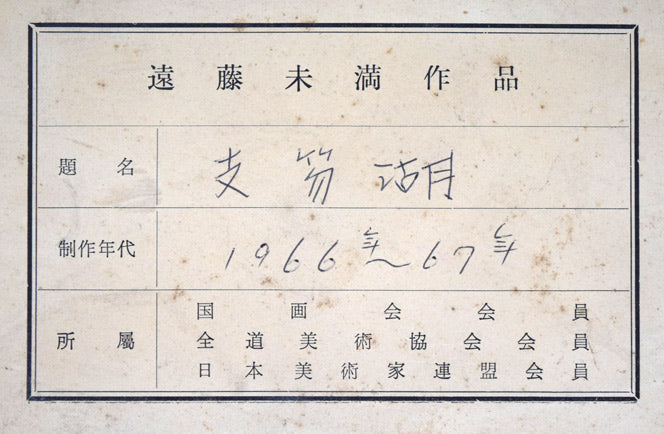 遠藤未満作品
題名 支笏湖
制作年代 1966年〜67年
所屬 国画会会員
全道美術協会会員
日本美術家連盟会員